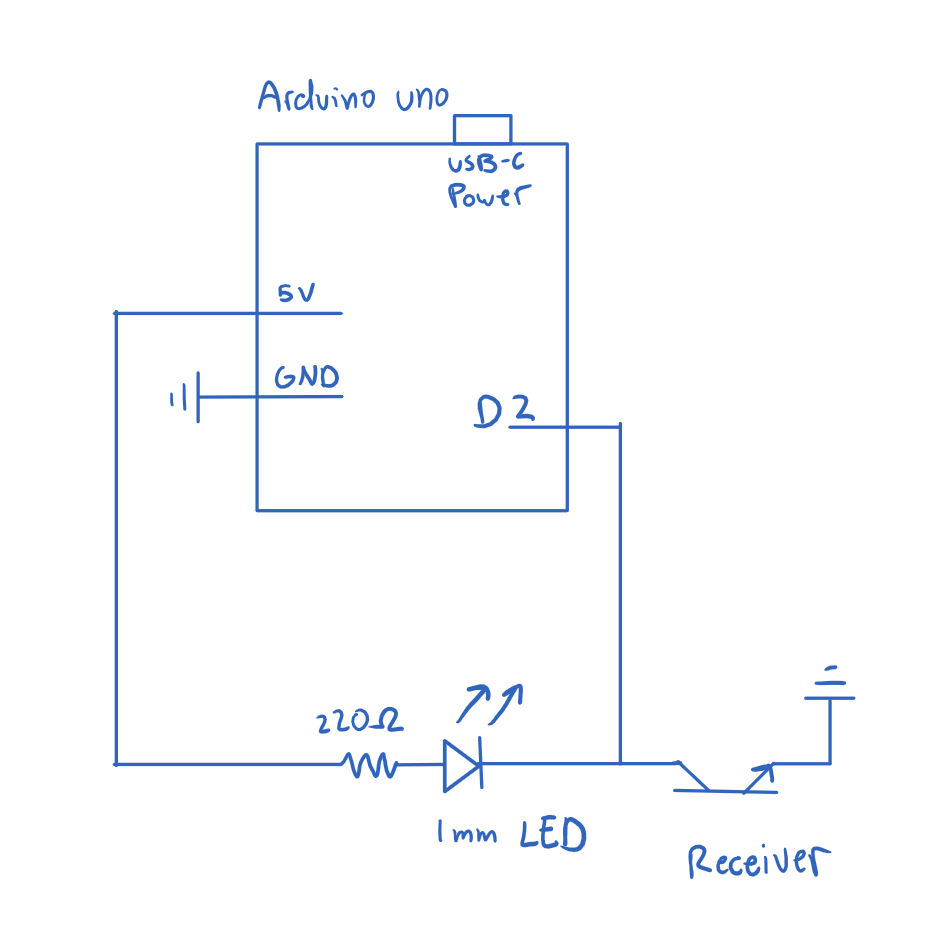 Arduino uno
USB-C
Power
5V
GND
D2
220Ω
1mm LED
Receiver